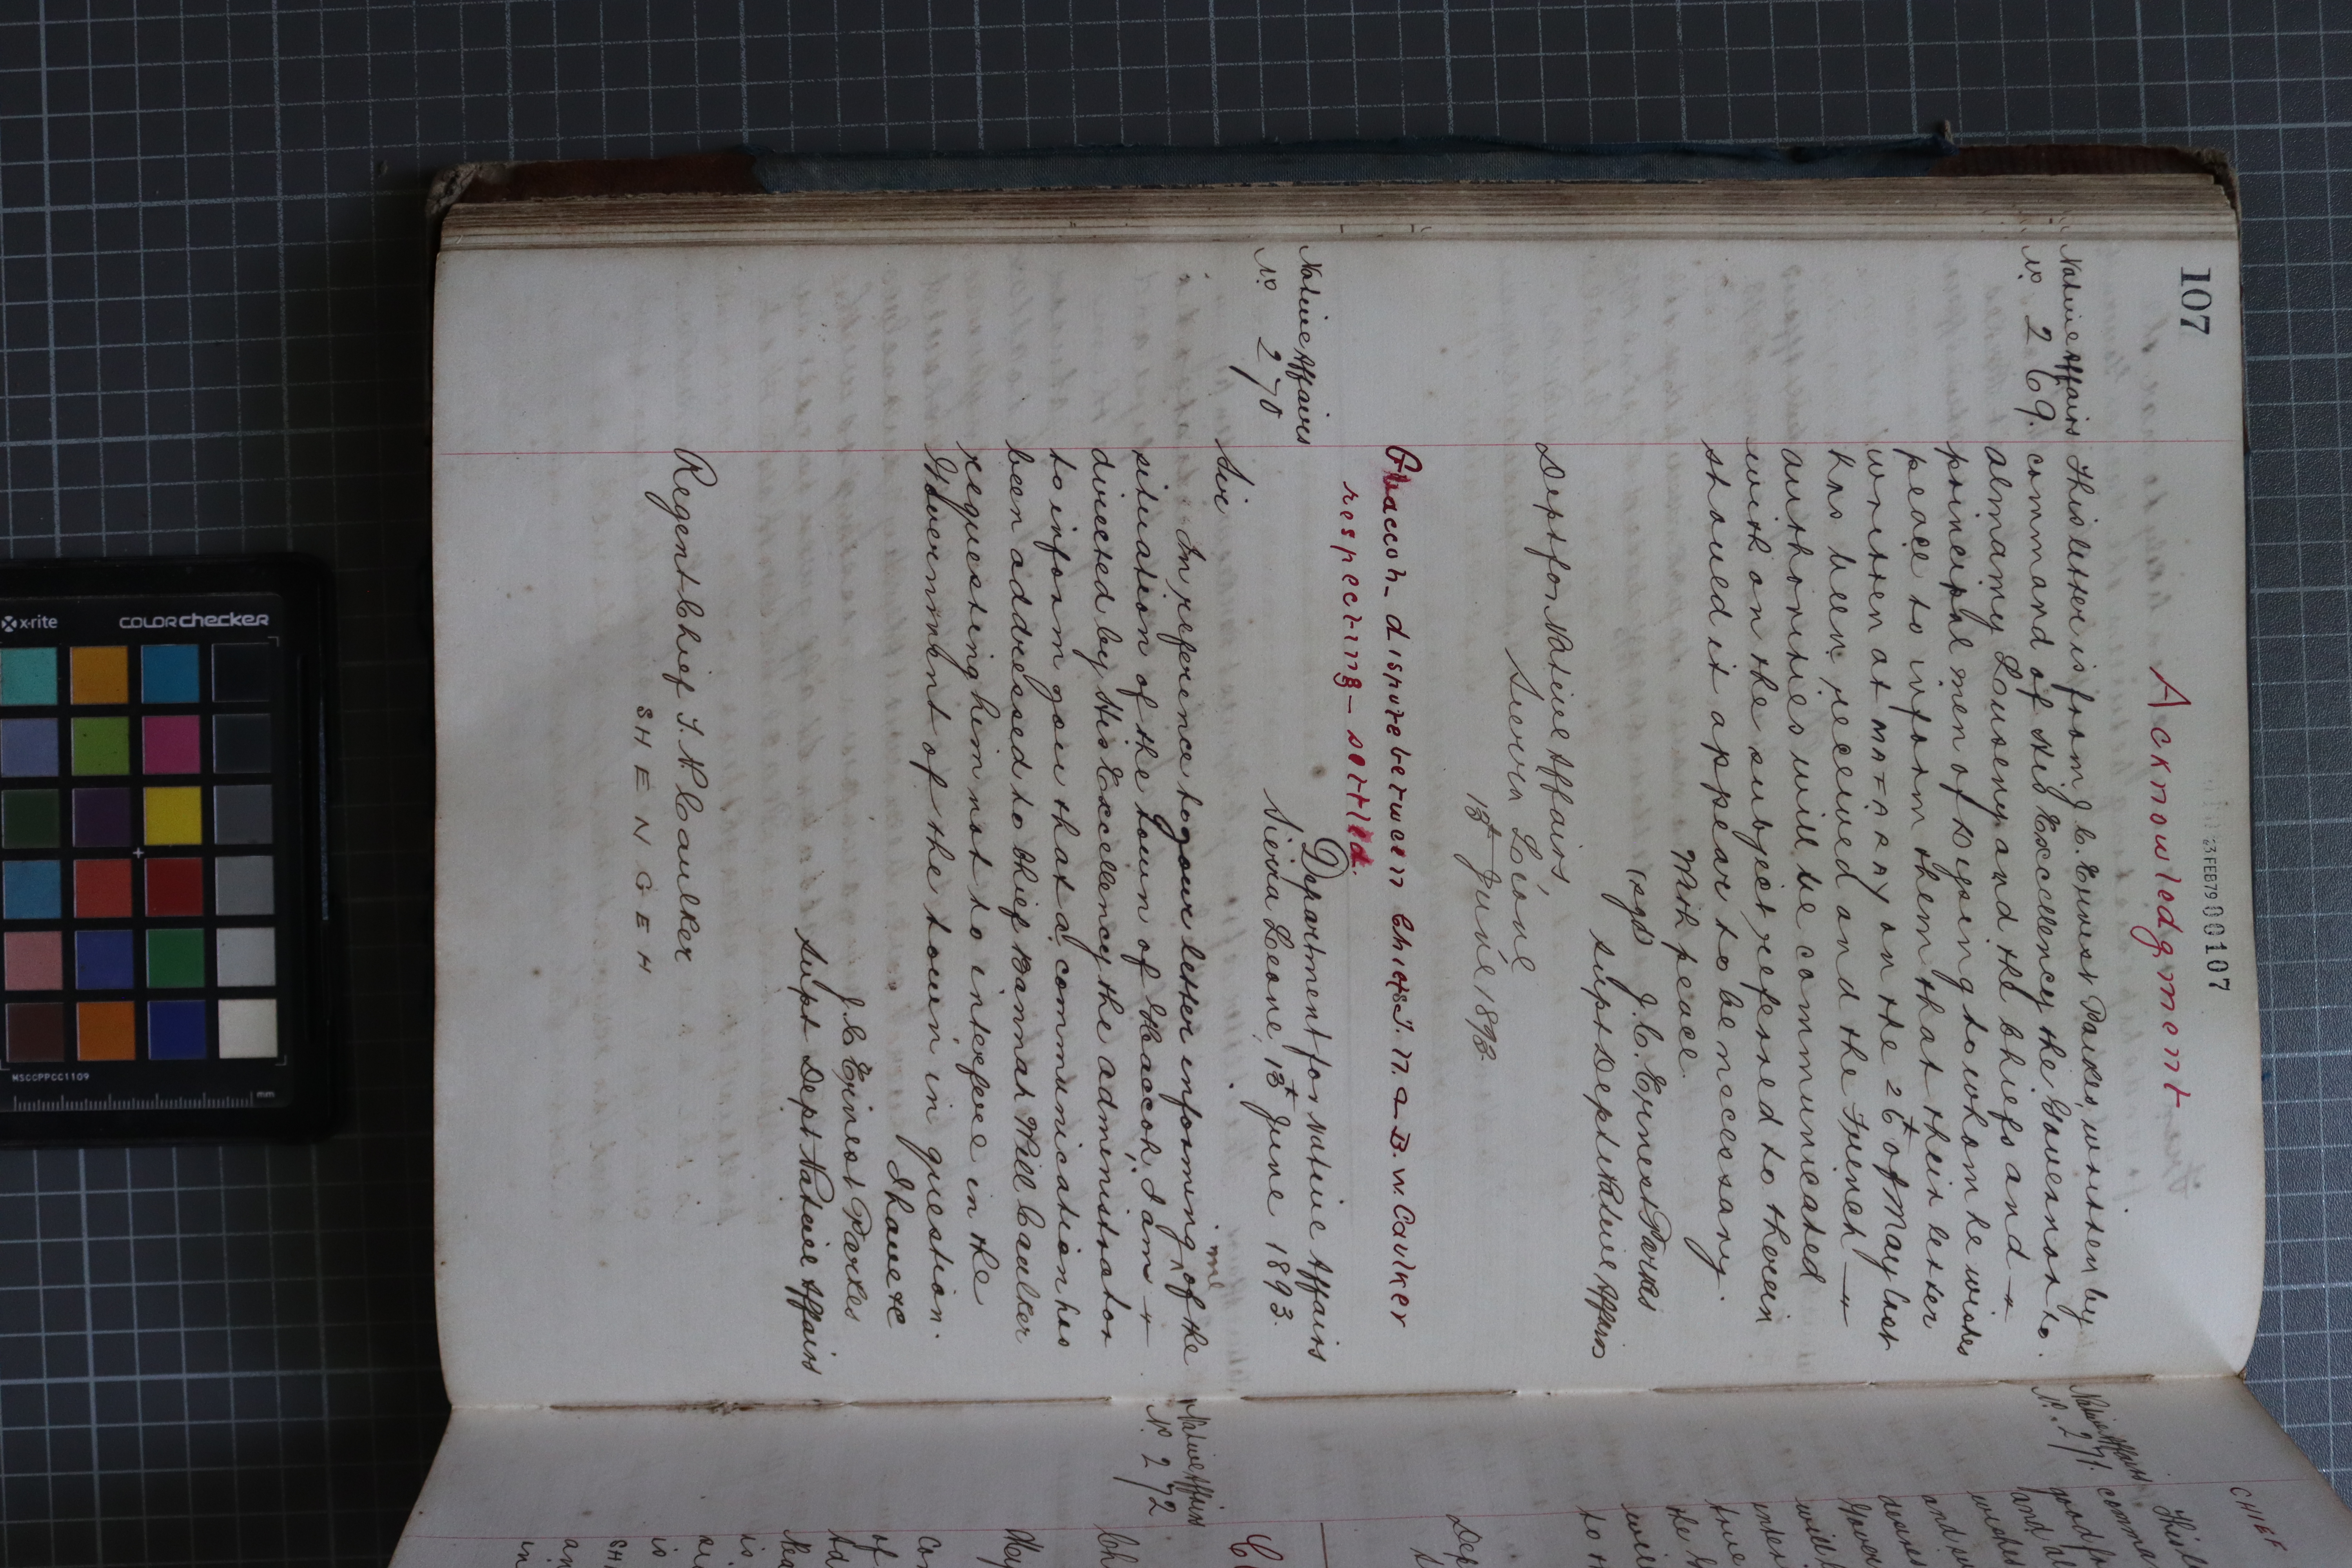 107
23FEB79 00107
Acknowledgment
Native Affairs
No. 269.
This letter is from J. C. Ernest Parkes, written by
command of His Excellency the Governor to
Almamy Louseny and the Chiefs and
principal men of to whom he wishes
peace to inform them that their letter
written at MAFARAY on the 26th of May last
has been received and the French
authorities will be communicated
with on the subject referred to therein
should it appear to be necessary.
With peace.
(sgd) J. C. Ernest Parkes
Supt Dept Native Affairs
Dept for Native Affairs,
Sierra Leone
13th June 1893.
dispute between Chiefs T. N. & B. W. Caulker
respecting - settled.
Native Affairs
No 270
Department for Native Affairs
Sierra Leone, 13th June 1893.
Sir
In reference to your letter informing me of the
situation of the town of I am
directed by His Excellency the Administrator
to inform you that a communication has
been addressed to Chief Bannah Will Caulker
requesting him not to interfere in the
Government of the town in question.
I have &c
J. C. Ernest Parkes
Supt Dept Native Affairs
Regent Chief T. N. Caulker
SHENGEH
CHIEF
Native Affairs
No. 271.
This
comma
good
and
Native Affairs
No. 272
x-rite
COLORchecker
MSCCPPCC1109
mm